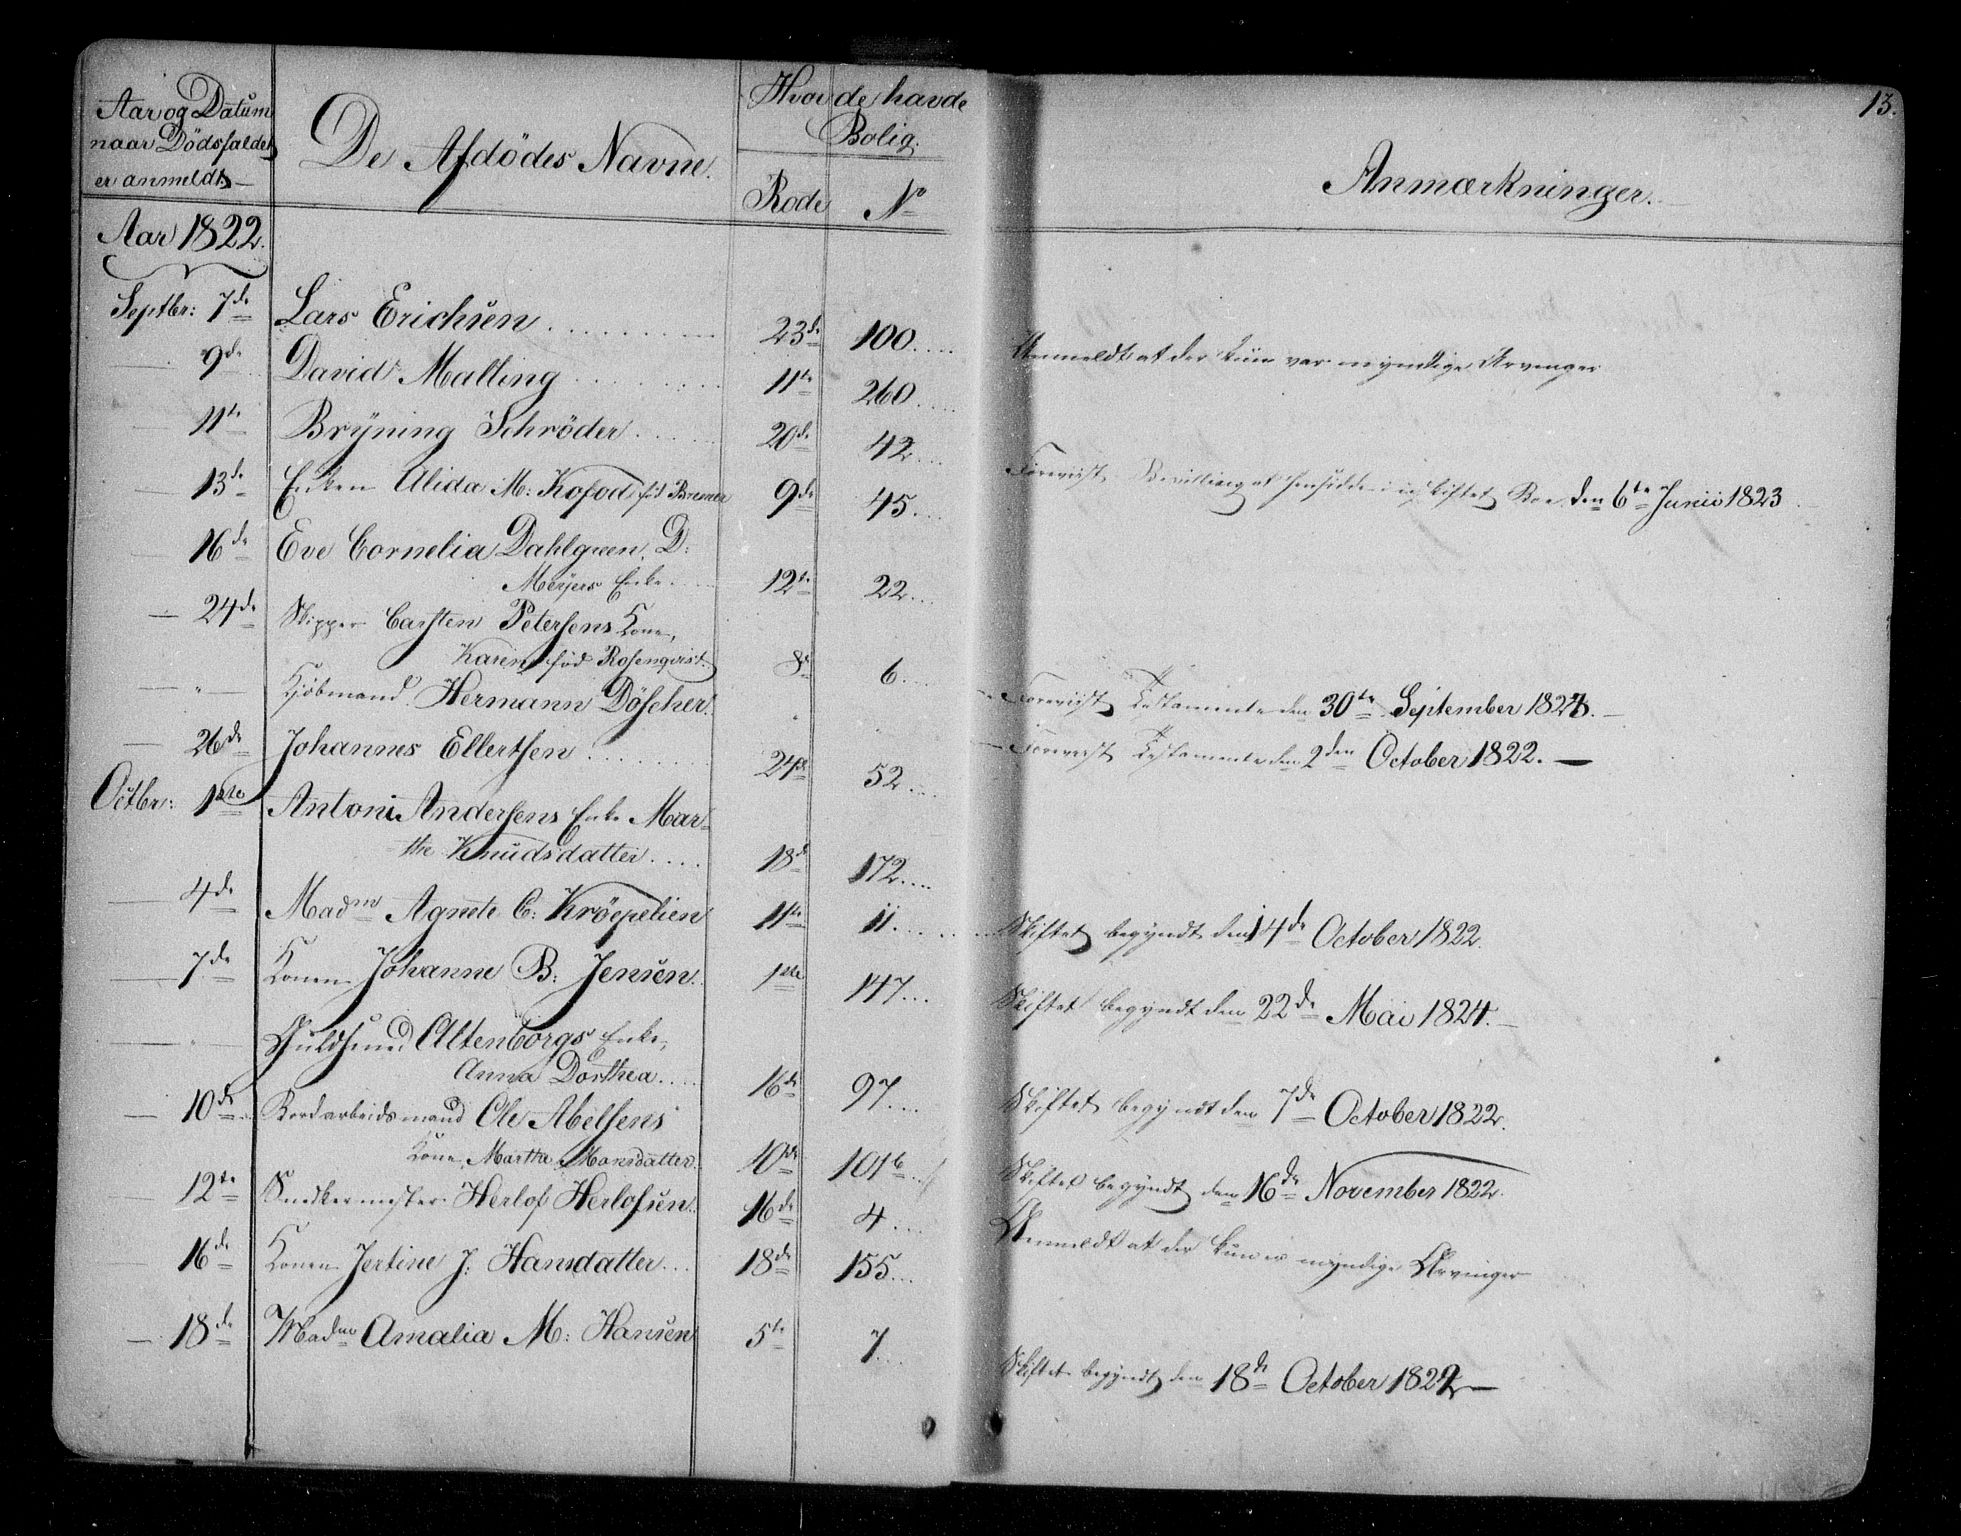 13.
Aar og Datum
naar Dödsfaldet
er anmeldt.
De Afdödes Navne.
Hvor de havde
Bolig.
Rode No
Anmærkninger.
Aar 1822.
Septbr: 7de Lars Erichsen 23de 100
9de David Malling 11te 260 Anmeldt at der kun var myndige Arvinger
11te Bryning Schröder 20de 42
13de Enken Alida M: Kofod föd Bremer 9de 45 Foreviist Bevilling at hensidde i uskiftet Boe den 6te Junii 1823
16de Eve Cornelia Dahlgreen, D:
Meyers Enke 12te 22
24de Skipper Carsten Petersens Kone,
Karen föd Rosenqvist 8de 6
— " — Kjöbmand Hermann Döscher. " Foreviist Testamente den 30te September 1822.
26de Johannes Ellertsen 24de 52 Foreviist Testamente den 2den October 1822.
Octbr: 1ste Antoni Andersens Enke Mar-
the Knudsdatter 18de 172
4de Madm Agnete C: Kröepelien 11te 11 Skiftet begyndt den 14de October 1822.
7de Konen Johanne B: Jensen 1ste 147 Skiftet begyndt den 22de Mai 1824.
— " — Guldsmed Altenborgs Enke,
Anna Dorthea 16de 97 Skiftet begyndt den 7de October 1822.
10de Bordarbeidsmand Ole Abelsens
Kone, Martha Monsdatter 10de 101b Skiftet begyndt den 16de November 1822.
12te Snedkermester Herlof Herlofsen 16de 4 Anmeldt at der kun er myndige Arvinger
16de Konen Jertine J: Hansdatter 18de 155
18de Madme Amalia M: Hansen 5te 7 Skiftet begyndt den 18de October 1822